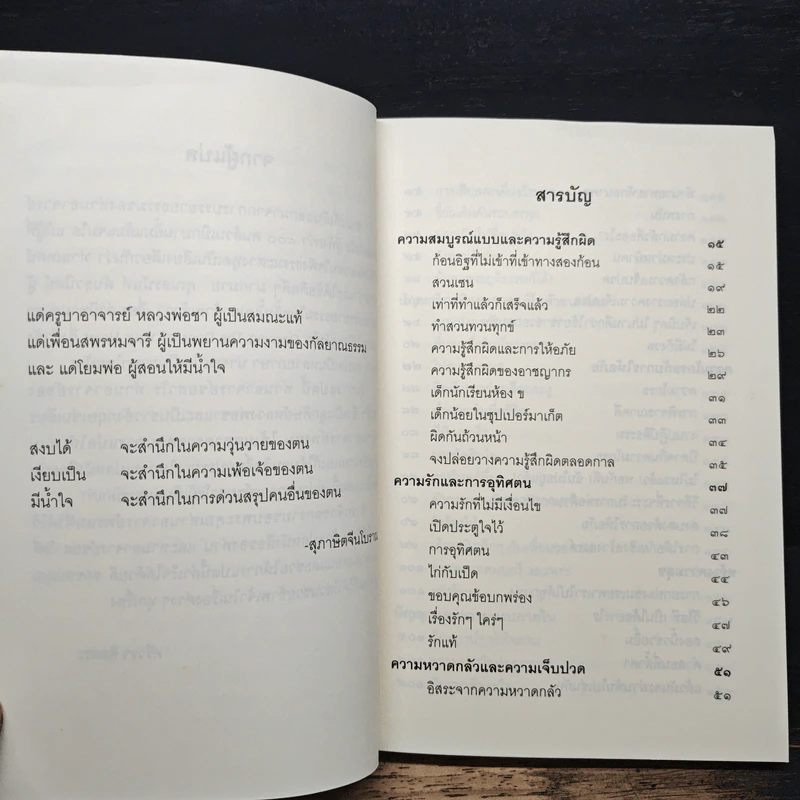 แด่ครูบาอาจารย์ หลวงพ่อชา ผู้เป็นสมณะแท้
แด่เพื่อนสพรหมจารี ผู้เป็นพยานความงามของกัลยาณธรรม
และ แด่โยมพ่อ ผู้สอนให้มีน้ำใจ
สงบได้ จะสำนึกในความวุ่นวายของตน
เงียบเป็น จะสำนึกในความเพ้อเจ้อของตน
มีน้ำใจ จะสำนึกในการด่วนสรุปคนอื่นของตน
-สุภาษิตจีนโบราณ
สารบัญ
ความสมบูรณ์แบบและความรู้สึกผิด ๑๕
ก้อนอิฐที่ไม่เข้าที่เข้าทางสองก้อน ๑๕
สวนเซน ๑๙
เท่าที่ทำแล้วก็เสร็จแล้ว ๒๒
ทำสวนทวนทุกข์ ๒๓
ความรู้สึกผิดและการให้อภัย ๒๖
ความรู้สึกผิดของอาชญากร ๒๙
เด็กนักเรียนห้อง ข ๓๑
เด็กน้อยในซุปเปอร์มาเก็ต ๓๓
ผิดกันถ้วนหน้า ๓๔
จงปล่อยวางความรู้สึกผิดตลอดกาล ๓๕
ความรักและการอุทิศตน ๓๗
ความรักที่ไม่มีเงื่อนไข ๓๗
เปิดประตูใจไว้ ๓๘
การอุทิศตน ๔๓
ไก่กับเป็ด ๔๔
ขอบคุณข้อบกพร่อง ๔๖
เรื่องรักๆ ใคร่ๆ ๔๗
รักแท้ ๔๙
ความหวาดกลัวและความเจ็บปวด ๕๑
อิสระจากความหวาดกลัว ๕๑